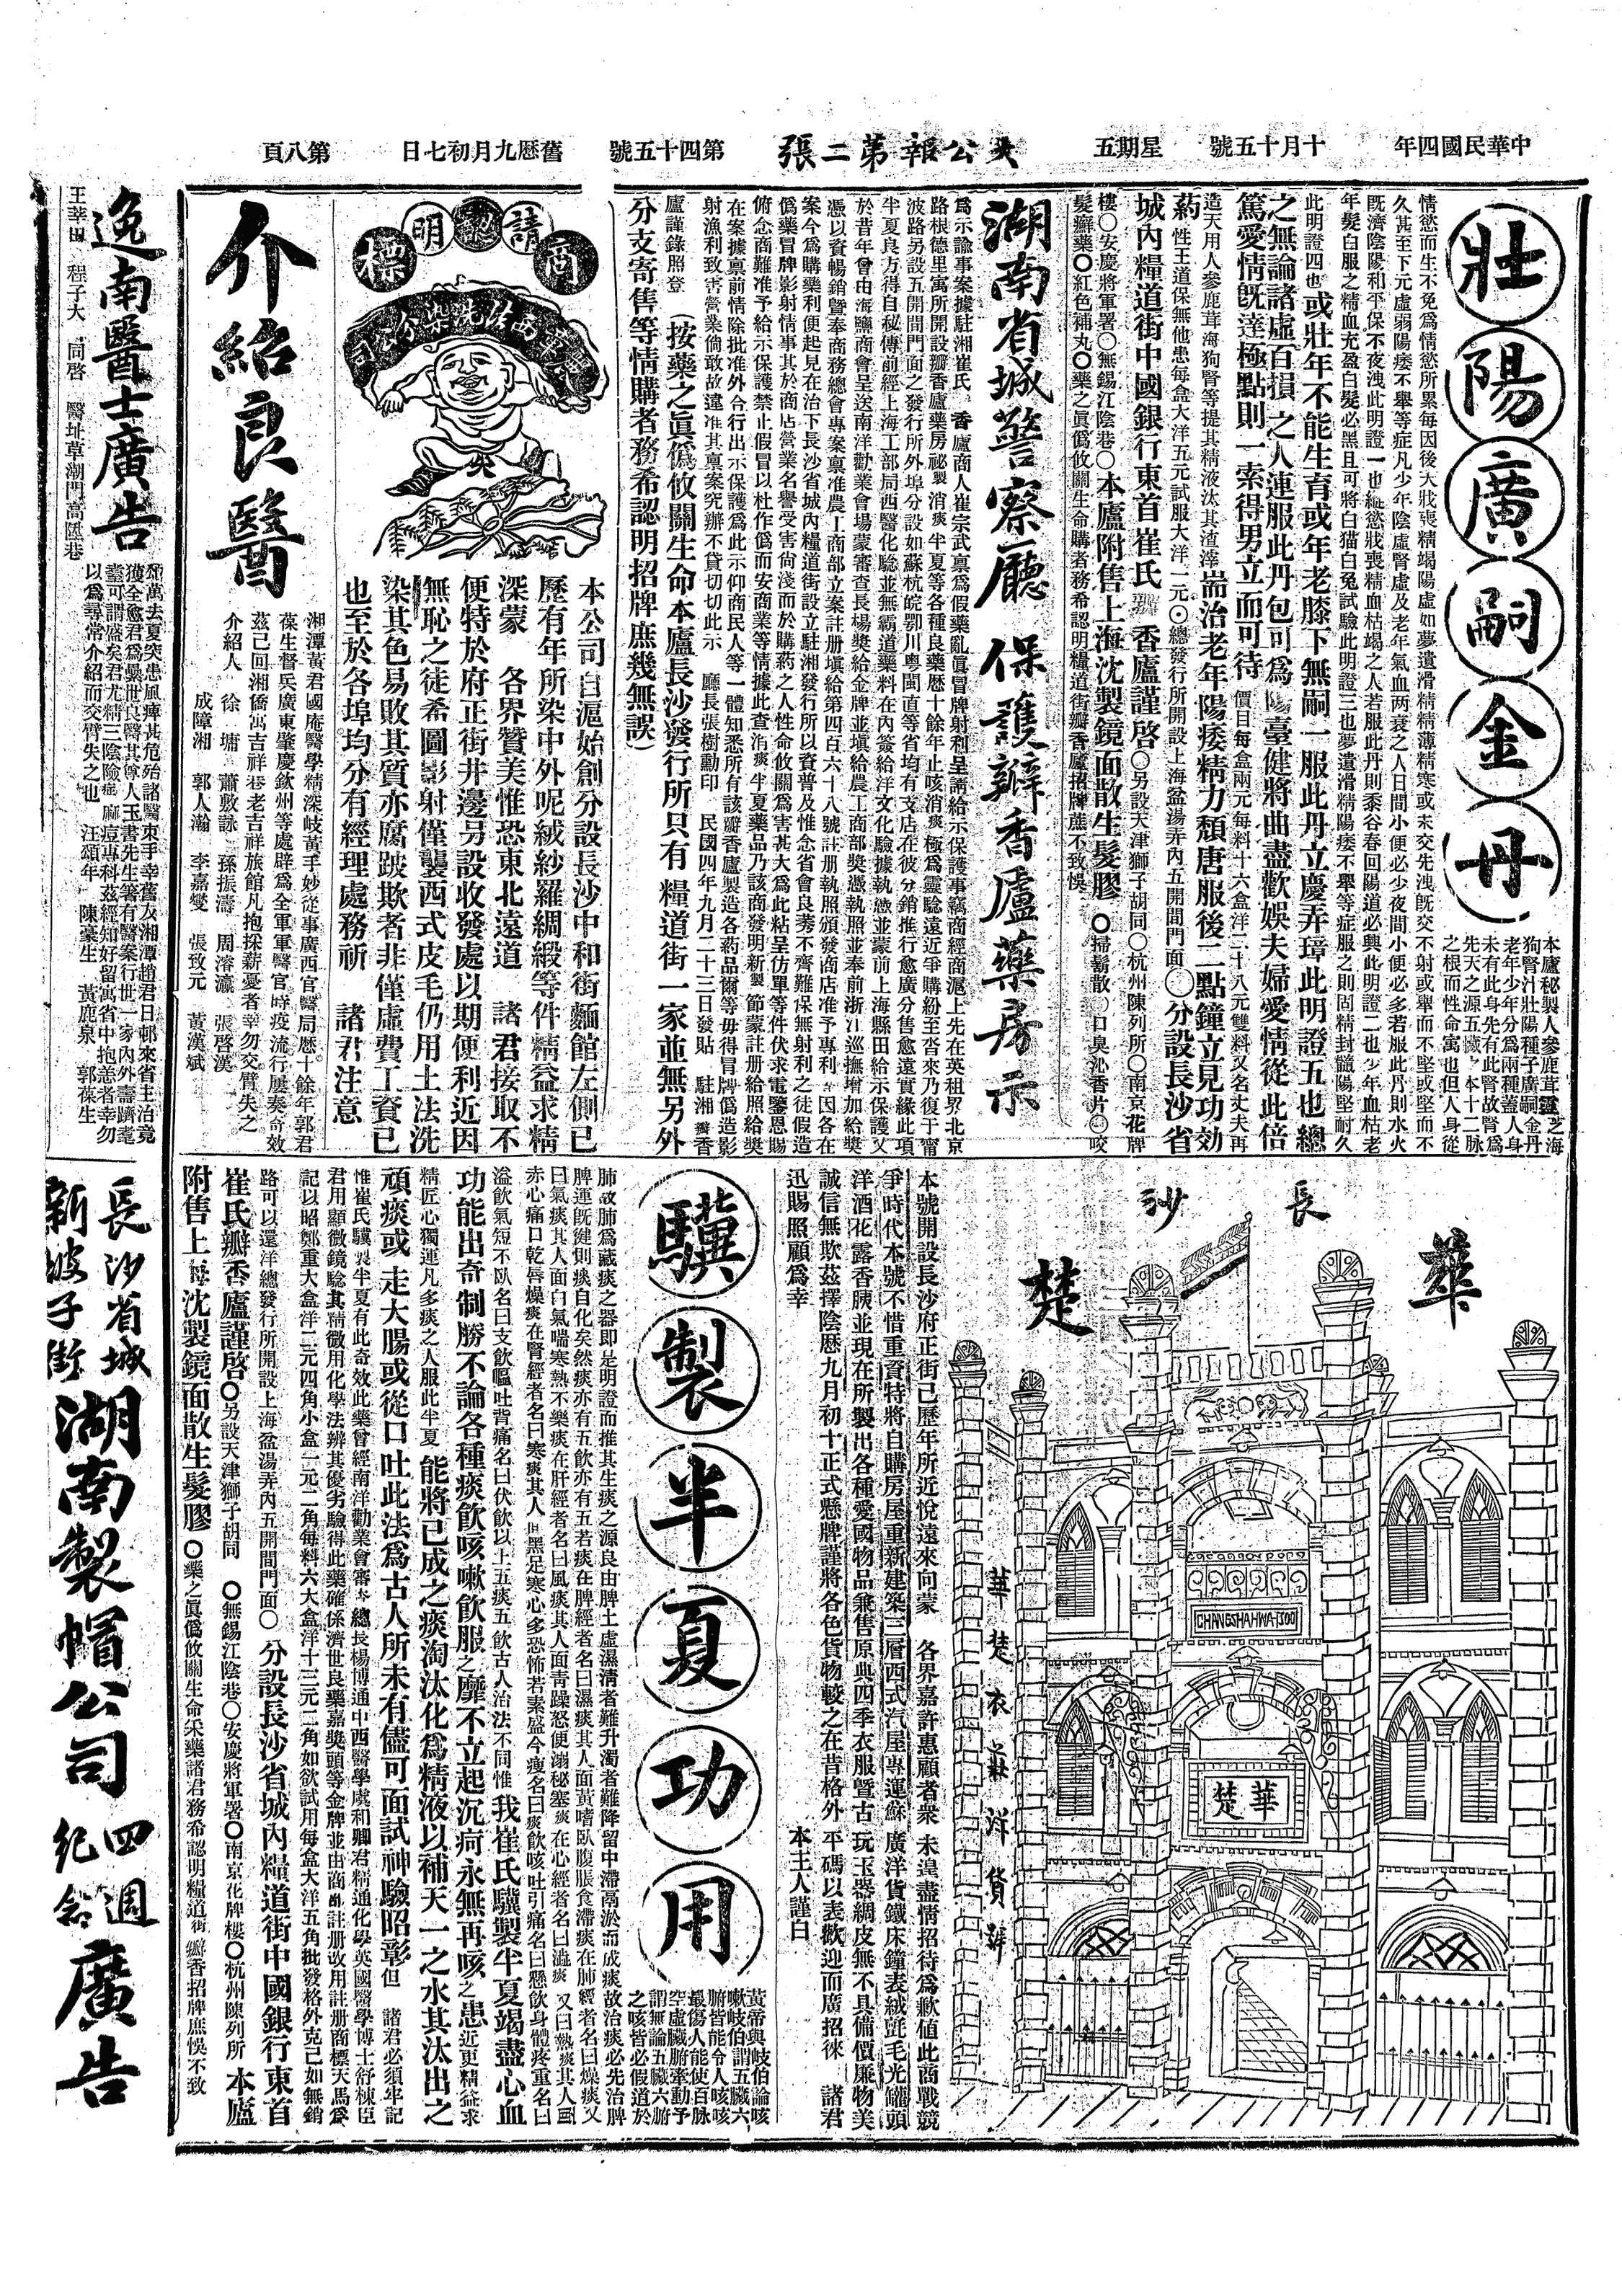 中華民國四年
十月十五號
星期五
大公報第二張
第四十五號
舊曆九月初七日
第八頁
壯陽廣嗣金丹
本廬秘製人參鹿茸靈芝海
狗腎汁壯陽種子廣嗣金丹
老年少年分爲兩種蓋人身
未有此身先有此腎故腎爲
先天之源五臟之本十二脉
之根而性命寓也但人身從
情慾而生不免爲情慾所累每因後天戕喪精竭陽虛如夢遺滑精精薄精寒或未交先洩旣交不射或舉而不堅或堅而不
久甚至下元虛弱陽痿不舉等症凡少年陰虛腎虛及老年氣血兩衰之人日間小便必少夜間小便必多若服此丹則水火
旣濟陰陽和平保不夜洩此明證一也縱慾戕喪精血枯竭之人若服此丹則黍谷春回陽道必興此明證二也少年血枯老
年髮白服之精血充盈白髮必黑且可將白猫白兔試驗此明證三也夢遺滑精陽痿不舉等症服之則固精封髓陽堅耐久
此明證四也或壯年不能生育或年老膝下無嗣一服此丹立慶弄璋此明證五也總
之無論諸虛百損之人連服此丹包可爲陽臺健將曲盡歡娛夫婦愛情從此倍
篤愛情旣達極點則一索得男立而可待 價目每盒兩元每料十六盒洋二十八元雙料又名丈夫再
造天用人參鹿茸海狗腎等提其精液汰其渣滓耑治老年陽痿精力頹唐服後二點鐘立見功効
药 性王道保無他患每盒大洋五元試服大洋一元⊙總發行所開設上海盆湯弄內五開間門面○分設長沙省
城內糧道街中國銀行東首崔氏 香廬謹啓○另設天津獅子胡同○杭州陳列所○南京花牌
樓○安慶將軍署○無錫江陰巷○本廬附售上海沈製鏡面散生髮膠 ○掃鬍散○口臭沁香片○咬
髮癬藥○紅色補丸○藥之眞僞攸關生命購者務希認明糧道街瓣香廬招牌庶不致悞
湖南省城警察廳保護瓣香廬藥房示
爲示諭事案據駐湘崔氏 香廬商人崔宗武禀爲假藥亂眞冒牌射利呈請給示保護事竊商經商滬上先在英租界北京
路根德里寓所開設瓣香廬藥房祕製消痰半夏等各種良藥歷十餘年止咳消痰極爲靈驗遠近爭購紛至沓來乃復于甯
波路另設五開間門面之發行所外埠分設如蘇杭皖鄂川粵閩直等省均有支店在彼分銷推行愈廣分售愈遠實緣此項
半夏良方得自秘傳前經上海工部局西醫化驗並無霸道藥料在內簽給洋文化驗據執憑並蒙前上海縣田給示保護又
於昔年曾由海鹽商會呈送南洋勸業會塲蒙審查長楊獎給金牌並塡給農工商部奬憑執照並奉前浙江巡撫增加給奬
憑以資暢銷暨奉商務總會專案禀准農工商部立案註册塡給第四百六十八號註册執照頒發商店准予專利 因各在
案今爲購藥利便起見在治下長沙省城內糧道街設立駐湘發行所以資普及惟念省會良莠不齊難保無射利之徒假造
僞藥冒牌影射情事其於商店營業名譽受害尙淺而於購葯之人性命攸關爲害甚大爲此粘呈仿單等件伏求電鑒恩賜
俯念商難准予給示保護禁止假冒以杜作僞而安商業等情據此查消痰半夏藥品乃該商發明新製 節蒙註册給照給獎
在案據禀前情除批准外合行出示保護爲此示仰商民人等一體知悉所有該瓣香廬製造各葯品爾等毋得冒牌僞造影
射漁利致害營業倘敢故違准其禀案究辦不貸切切此示 廳長張樹勳印 民國四年九月二十三日發貼 駐湘瓣香
廬謹錄照登 (按藥之眞僞攸關生命本廬長沙發行所只有糧道街一家並無另外
分支寄售等情購者務希認明招牌庶幾無誤)
請認明商標
本公司自滬始創分設長沙中和街麵館左側已
歷有年所染中外呢絨紗羅綢緞等件精益求精
深蒙 各界贊美惟恐東北遠道 諸君接取不
便特於府正街井邊另設收發處以期便利近因
無恥之徒希圖影射僅襲西式皮毛仍用土法洗
染其色易敗其質亦腐跛欺者非僅虛費工資已
也至於各埠均分有經理處務祈 諸君注意
介紹良醫
湘潭黃君國庵醫學精深岐黃手妙從事廣西官醫局歷十餘年郭君
葆生督兵廣東肇慶欽州等處辟爲全軍軍醫官時疫流行屢奏奇效
茲已回湘僑寓吉祥巷老吉祥旅館凡抱採薪憂者幸勿交臂失之
介紹人 徐墉 蕭敷詠 孫振濤 周溶瀛 張啓漢
成障湘 郭人瀚 李嘉燮 張致元 黃漢斌
逸南醫士廣告
獲全愈君爲彙世良醫其尊人玉書先生箸有醫案行世一家內外壽躋耄
耋可謂盛矣君尤精三陰險症 麻痘專科茲經知好留寓省中抱恙者幸勿
以爲尋常介紹而交臂失之也 汪頌年 陳豪生 黃鹿泉 郭葆生
程子大 同啓 醫址草潮門高陞巷
長沙
華楚
CHANGSHAHWATSOO
華楚
華楚衣莊洋貨號
本號開設長沙府正街已歷年所近悅遠來向蒙 各界嘉許惠顧者衆 未遑盡情招待爲歉値此商戰競
爭時代本號不惜重資特將自購房屋重新建築三層西式汽屋專運蘇 廣洋貨鐵床鐘表絨氈毛光罐頭
洋酒花露香胰並現在所製出各種愛國物品兼售原典四季衣服曁古 玩玉器綢皮無不具備價廉物美
誠信無欺茲擇陰歷九月初十正式懸牌謹將各色貨物較之在昔格外 平碼以表歡迎而廣招徠 諸君
迅賜照顧爲幸
本主人謹白
驥製半夏功用
黃帝與岐伯論咳
嗽岐伯謂五臟六
腑皆能令人咳咳
最傷人能使百脉
空虛臟腑牽動予
謂無論五臟六腑
之咳皆必假道於
肺故肺爲藏痰之器卽是明證而推其生痰之源良由脾土虛濕淸者難升濁者難降留中滯鬲淤而成痰故治痰必先治脾
脾運旣健則痰自化矣然痰亦有五飮亦有五若痰在脾經者名曰濕痰其人面黃嗜臥腹脹食滯痰在肺經者名曰燥痰又
曰氣痰其人面白氣喘寒熱不樂痰在肝經者名曰風痰其人面靑躁怒便溺秘塞痰在心經者名曰溢痰 又曰熱痰其人面
赤心痛口乾唇燥痰在腎經者名曰寒痰其人面黑足寒心多恐怖若素盛今瘦名曰痰飮咳吐引痛名曰懸飮身體疼重名曰
溢飮氣短不臥名曰支飮嘔吐背痛名曰伏飮以上五痰五飮古人治法不同惟我崔氏驥製半夏竭盡心血
功能出奇制勝不論各種痰飮咳嗽飮服之靡不立起沉疴永無再咳之患近更精益求
精匠心獨運凡多痰之人服此半夏能將已成之痰淘汰化爲精液以補天一之水其汰出之
頑痰或走大腸或從口吐此法爲古人所未有儘可面試神驗昭彰但 諸君必須牢記
惟崔氏驥製半夏有此奇效此藥曾經南洋勸業會審查總長楊博通中西醫學虞和卿君精通化學英國醫學博士舒棟臣
君用顯微鏡驗其精微用化學法辨其優劣驗得此藥確係濟世良藥嘉奬頭等金牌並由商部註册改用註册商標天馬爲
記以昭鄭重大盒洋二元四角小盒一元二角每料六大盒洋十三元二角如欲試用每盒大洋五角批發格外克己如無銷
路可以還洋總發行所開設上海盆湯弄內五開間門面○分設長沙省城內糧道街中國銀行東首
崔氏瓣香廬謹啓○另設天津獅子胡同 ○無錫江陰巷○安慶將軍署○南京花牌樓○杭州陳列所 本廬
附售上海沈製鏡面散生髮膠 ○藥之眞僞攸關生命采藥諸君務希認明糧道街瓣香招牌庶悞不致
長沙省城新坡子街湖南製帽公司四週紀念廣告